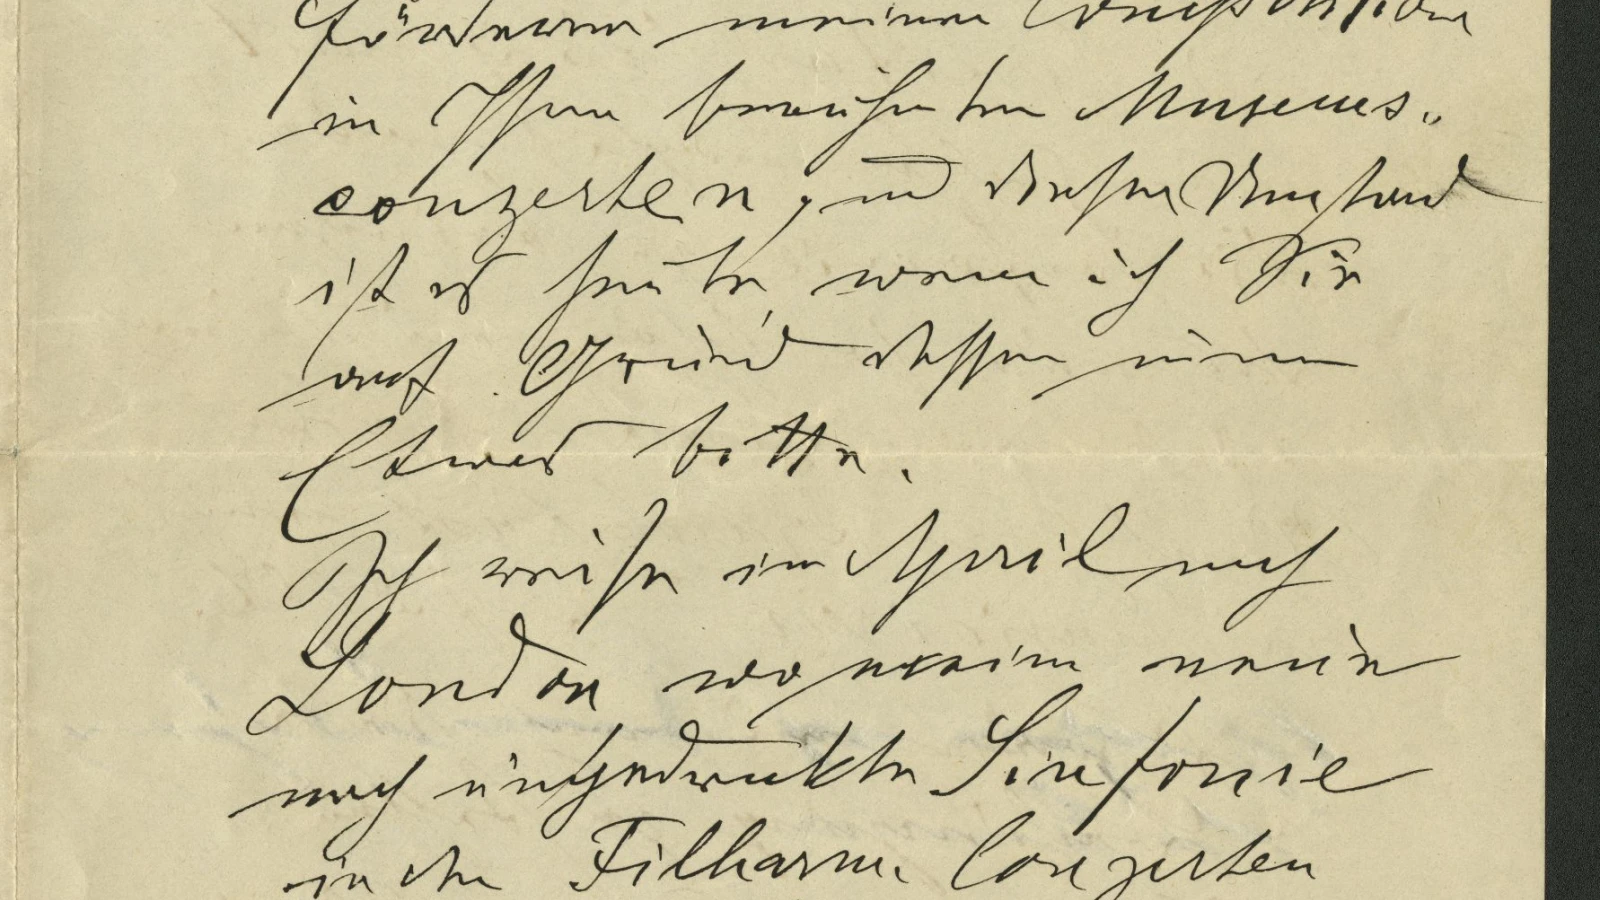 Förderer meiner Compositionen
in Ihren berühmten Museums-
conzerten, und dieser Umstand
ist es heute, wenn ich Sie
auf Grund dessen um
Etwas bitte.
Ich reise im April nach
London wo meine neue
noch ungedruckte Sinfonie
in den Filharm. Conzerten